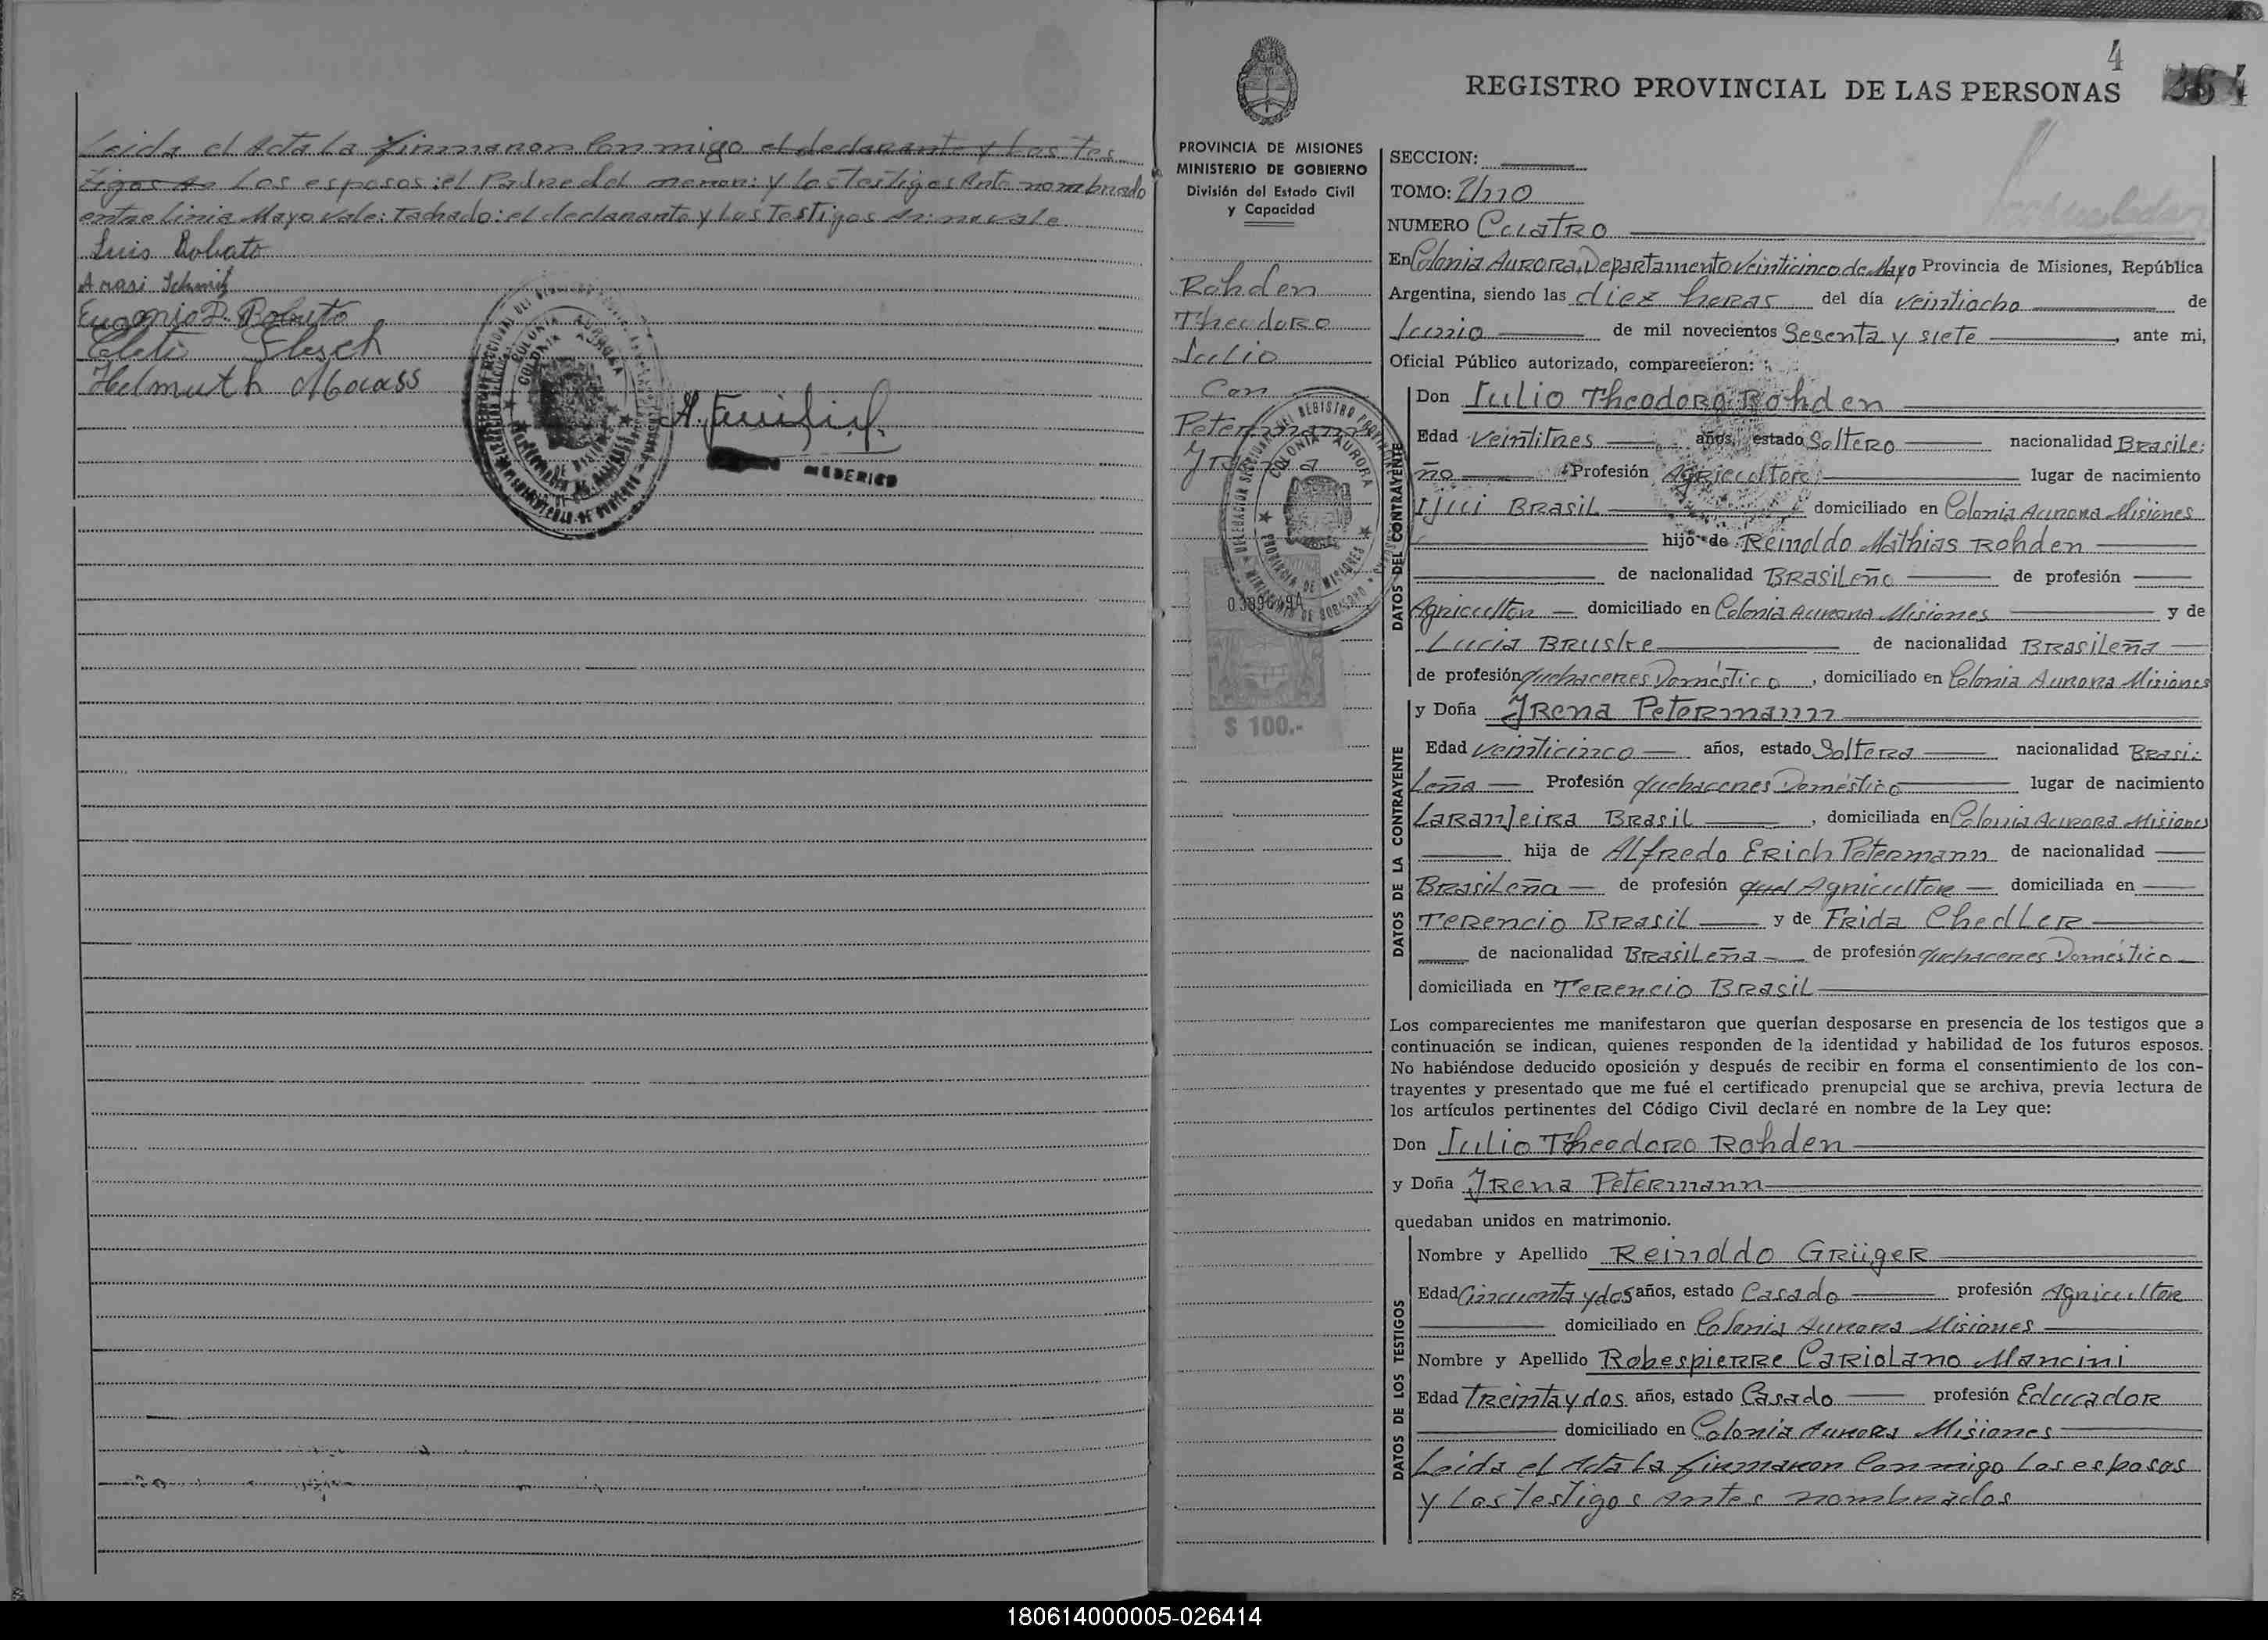 Leida el Acta la finmanon Con migo el declarante y Los Tes
tigos An Los esposos: el Padre del menon: y los Testigos Ante nombnado
entre linia Mayo vale: Tachado: el declarante y Los Testigos An: no vale
Luis Bobato
Arasi Schmit
Eugenio P. Bobato
Cleti Flesch
Helmuth Maass
COLONIA AURORA
MEDERICO
4
364
REGISTRO PROVINCIAL DE LAS PERSONAS
PROVINCIA DE MISIONES
MINISTERIO DE GOBIERNO
División del Estado Civil
y Capacidad
Rohden
Theodoro
Julio
Con
Petermann
Yrena
DELEGACION SECCIONAL DEL REGISTRO PROVINCIAL
COLONIA AURORA
PROVINCIA DE MISIONES
MINISTERIO DE GOBIERNO
$ 100.-
SECCION:
TOMO: Uno
NUMERO Cuatro
En Colonia Aurora, Departamento Veinticinco de Mayo Provincia de Misiones, República
Argentina, siendo las diez horas del día veintiocho de
Junio de mil novecientos Sesenta y siete, ante mi,
Oficial Público autorizado, comparecieron:
DATOS DEL CONTRAYENTE
Don Julio Theodoro Rohden
Edad Veintitres años, estado Soltero nacionalidad Brasile:
ño Profesión Agricultor lugar de nacimiento
Ijui Brasil domiciliado en Colonia Aurora Misiones
hijo de Reinoldo Mathias Rohden
de nacionalidad Brasileño de profesión
Agricultor domiciliado en Colonia Aurora Misiones y de
Lucia Bruske de nacionalidad Brasileña
de profesión quehaceres Doméstico, domiciliado en Colonia Aurora Misiones
DATOS DE LA CONTRAYENTE
y Doña Yrena Petermann
Edad veinticinco años, estado Soltera nacionalidad Brasi:
Leña Profesión quehaceres Doméstico lugar de nacimiento
Laranjeira Brasil, domiciliada en Colonia Aurora Misiones
hija de Alfredo Erich Petermann de nacionalidad
Brasileña de profesión quel Agricultor domiciliada en
Terencio Brasil y de Frida Chedler
de nacionalidad Brasileña de profesión quehaceres Doméstico
domiciliada en Terencio Brasil
Los comparecientes me manifestaron que querían desposarse en presencia de los testigos que a
continuación se indican, quienes responden de la identidad y habilidad de los futuros esposos.
No habiéndose deducido oposición y después de recibir en forma el consentimiento de los con-
trayentes y presentado que me fué el certificado prenupcial que se archiva, previa lectura de
los artículos pertinentes del Código Civil declaré en nombre de la Ley que:
Don Julio Theodoro Rohden
y Doña Yrena Petermann
quedaban unidos en matrimonio.
DATOS DE LOS TESTIGOS
Nombre y Apellido Reinoldo Grüger
Edad Cincuenta y dos años, estado Casado profesión Agricultor
domiciliado en Colonia Aurora Misiones
Nombre y Apellido Robespierre Cariolano Mancini
Edad Treinta y dos años, estado Casado profesión Educador
domiciliado en Colonia Aurora Misiones
Leida el Acta la finmaron Con migo Los esposos
y Los Testigos Antes nombnados
180614000005-026414